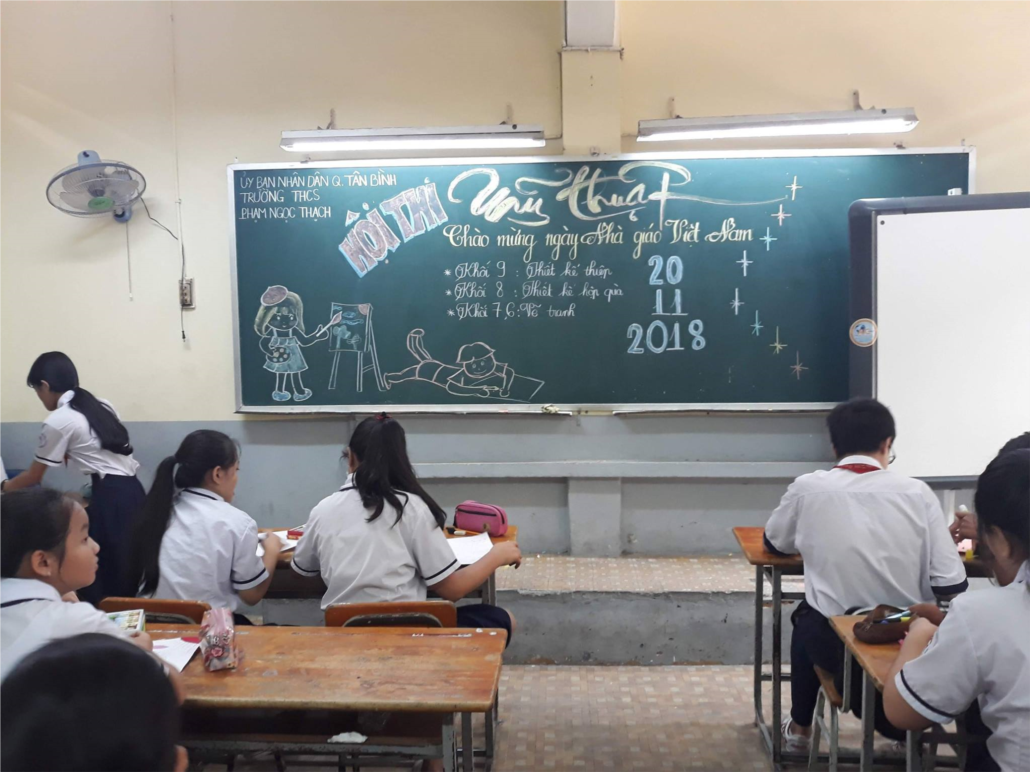 ỦY BAN NHÂN DÂN Q. TÂN BÌNH
TRƯỜNG THCS
PHẠM NGỌC THẠCH
HỘI THI
Mỹ thuật
Chào mừng ngày Nhà giáo Việt Nam
* Khối 9 : Thiết kế thiệp
* Khối 8 : Thiết kế hộp quà
* Khối 7,6: Vẽ tranh
20
11
2018